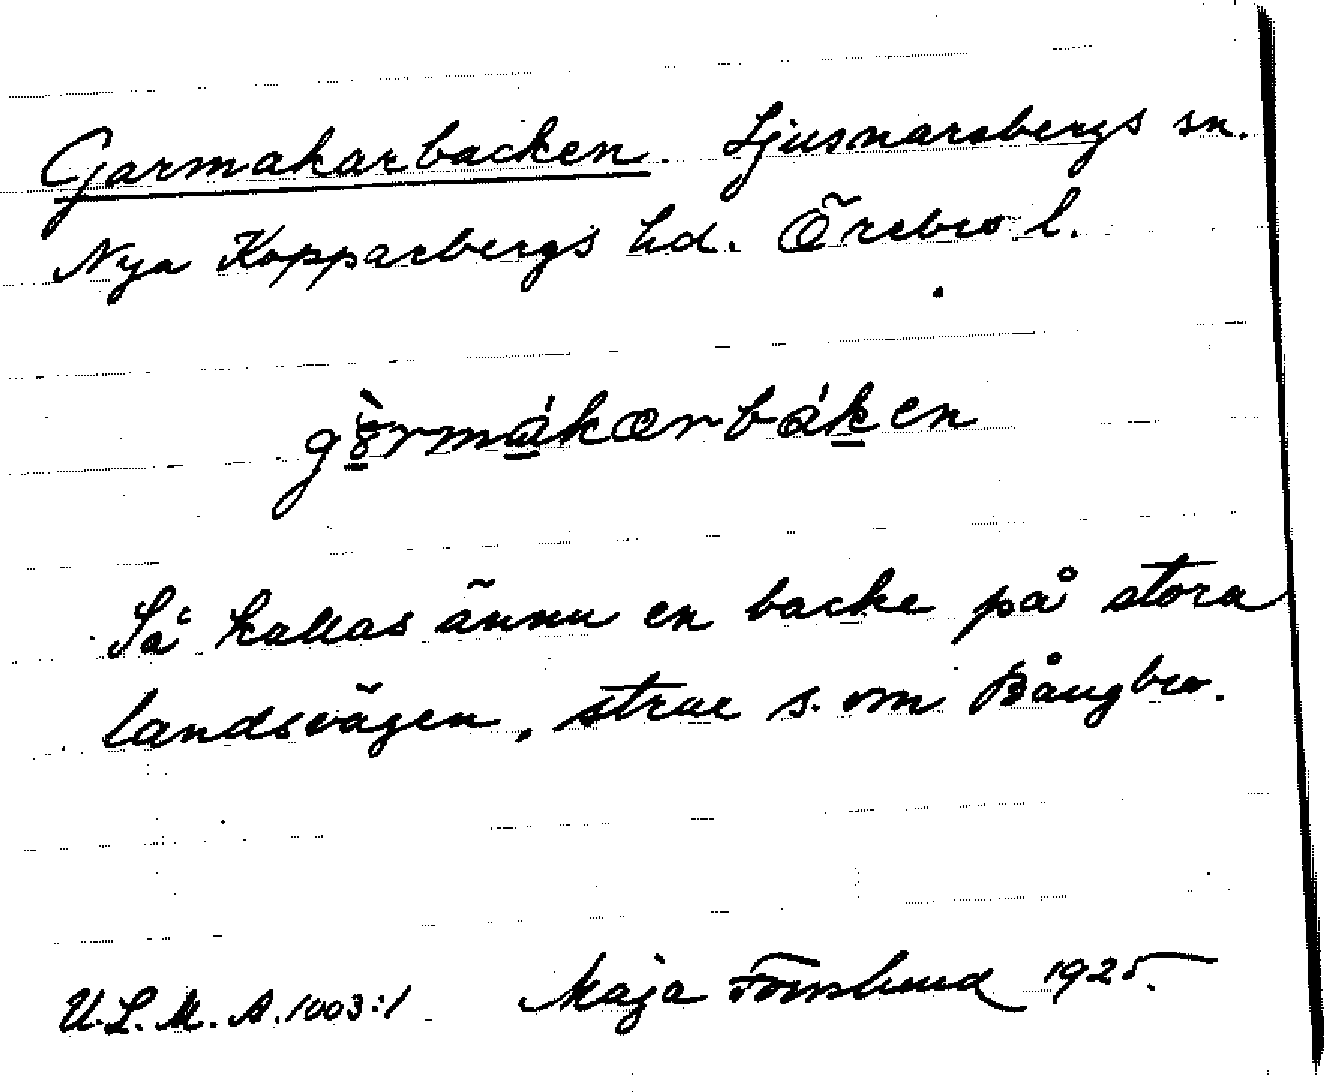 Garmakarbacken. Ljusnarsbergs sn.
Nya Kopparbergs hd. Örebro l.
Så kallas ännu en backe på stora
landsvägen, strax s. om Bångbro.
U.L.M.A. 1003:1 Maja Forslund 1925.